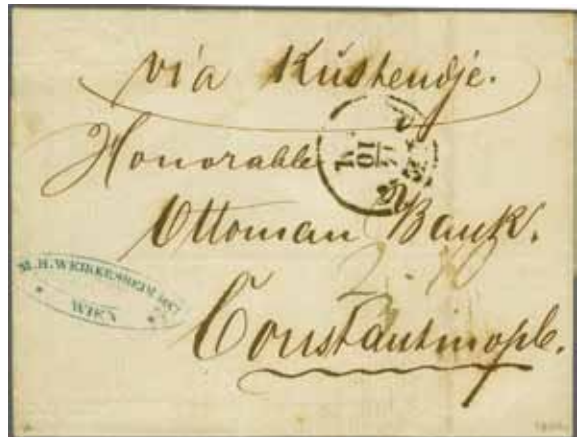 via Küstendje.
Honorable
Ottoman Bank.
Constantinople.
M. H. WEIKERSHEIM
WIEN